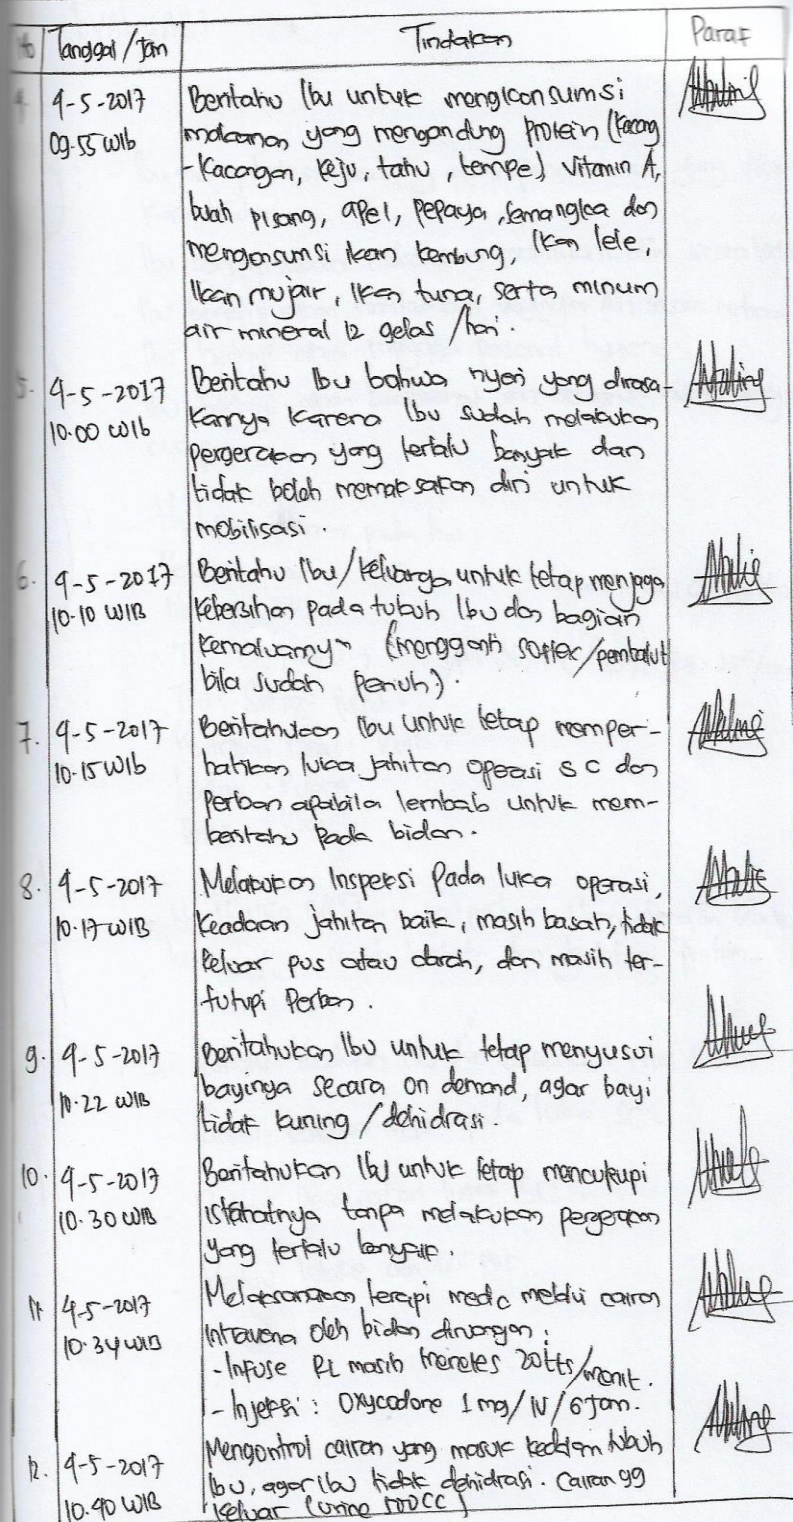 No Tanggal / Jam Tindakan Paraf
4. 9-5-2017 Beritahu Ibu untuk mengkonsumsi
09.55 wib makanan yang mengandung protein (kacang
-kacangan, keju, tahu, tempe) vitamin A,
buah pisang, apel, pepaya, semangka dan
mengonsumsi ikan kembung, ikan lele,
ikan mujair, ikan tuna, serta minum
air mineral 12 gelas /hari.
5. 9-5-2017 Beritahu Ibu bahwa nyeri yang dirasa-
10.00 wib kannya karena Ibu sudah melakukan
pergerakan yang terlalu banyak dan
tidak boleh memaksakan diri untuk
mobilisasi.
6. 9-5-2017 Beritahu Ibu/keluarga untuk tetap menjaga
10.10 WIB kebersihan pada tubuh Ibu dan bagian
kemaluannya (mengganti softex/pembalut
bila sudah penuh).
7. 9-5-2017 Beritahukan Ibu untuk tetap memper-
10.15 Wib hatikan luka jahitan operasi SC dan
perban apabila lembab untuk mem-
beritahu pada bidan.
8. 9-5-2017 Melakukan Inspeksi pada luka operasi,
10.17 WIB keadaan jahitan baik, masih basah, tidak
keluar pus atau darah, dan masih ter-
tutupi perban.
9. 9-5-2017 Beritahukan Ibu untuk tetap menyusui
10.22 WIB bayinya secara on demand, agar bayi
tidak kuning / dehidrasi.
10. 9-5-2017 Beritahukan Ibu untuk tetap mencukupi
10.30 WIB istirahatnya tanpa melakukan pergerakan
yang terlalu banyak.
11 9-5-2017 Melaksanakan terapi medic melalui cairan
10.34 WIB Intravena oleh bidan diruangan :
- Infuse RL masih menetes 20tts/menit.
- Injeksi : Oxycodone 1 mg/IV/6 Jam.
12. 9-5-2017 Mengontrol cairan yang masuk kedalam tubuh
10.40 WIB Ibu, agar Ibu tidak dehidrasi. Cairan yg
keluar (urine 500CC)